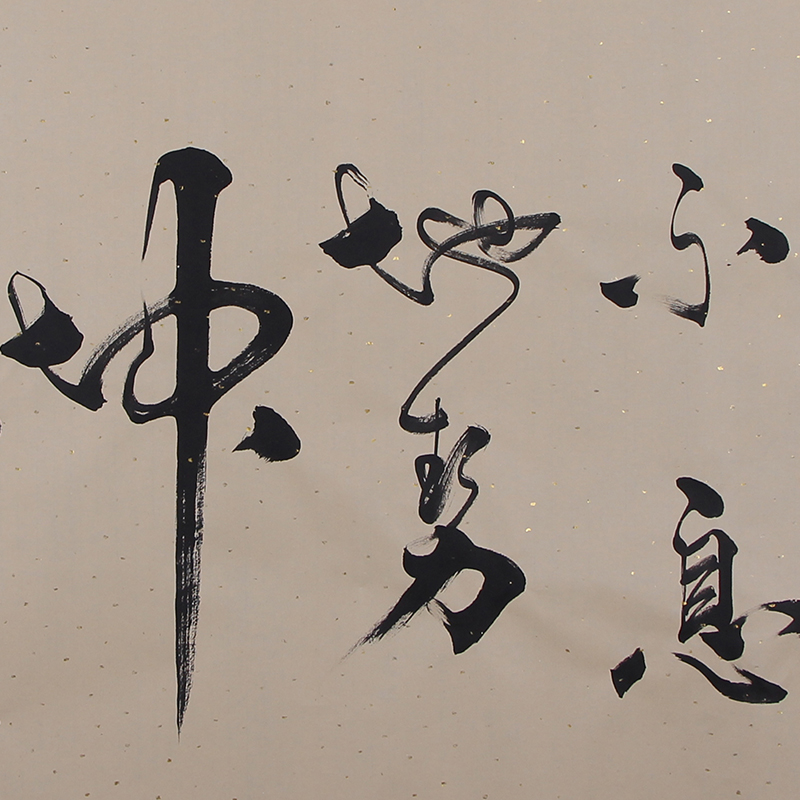 不息
地势
坤